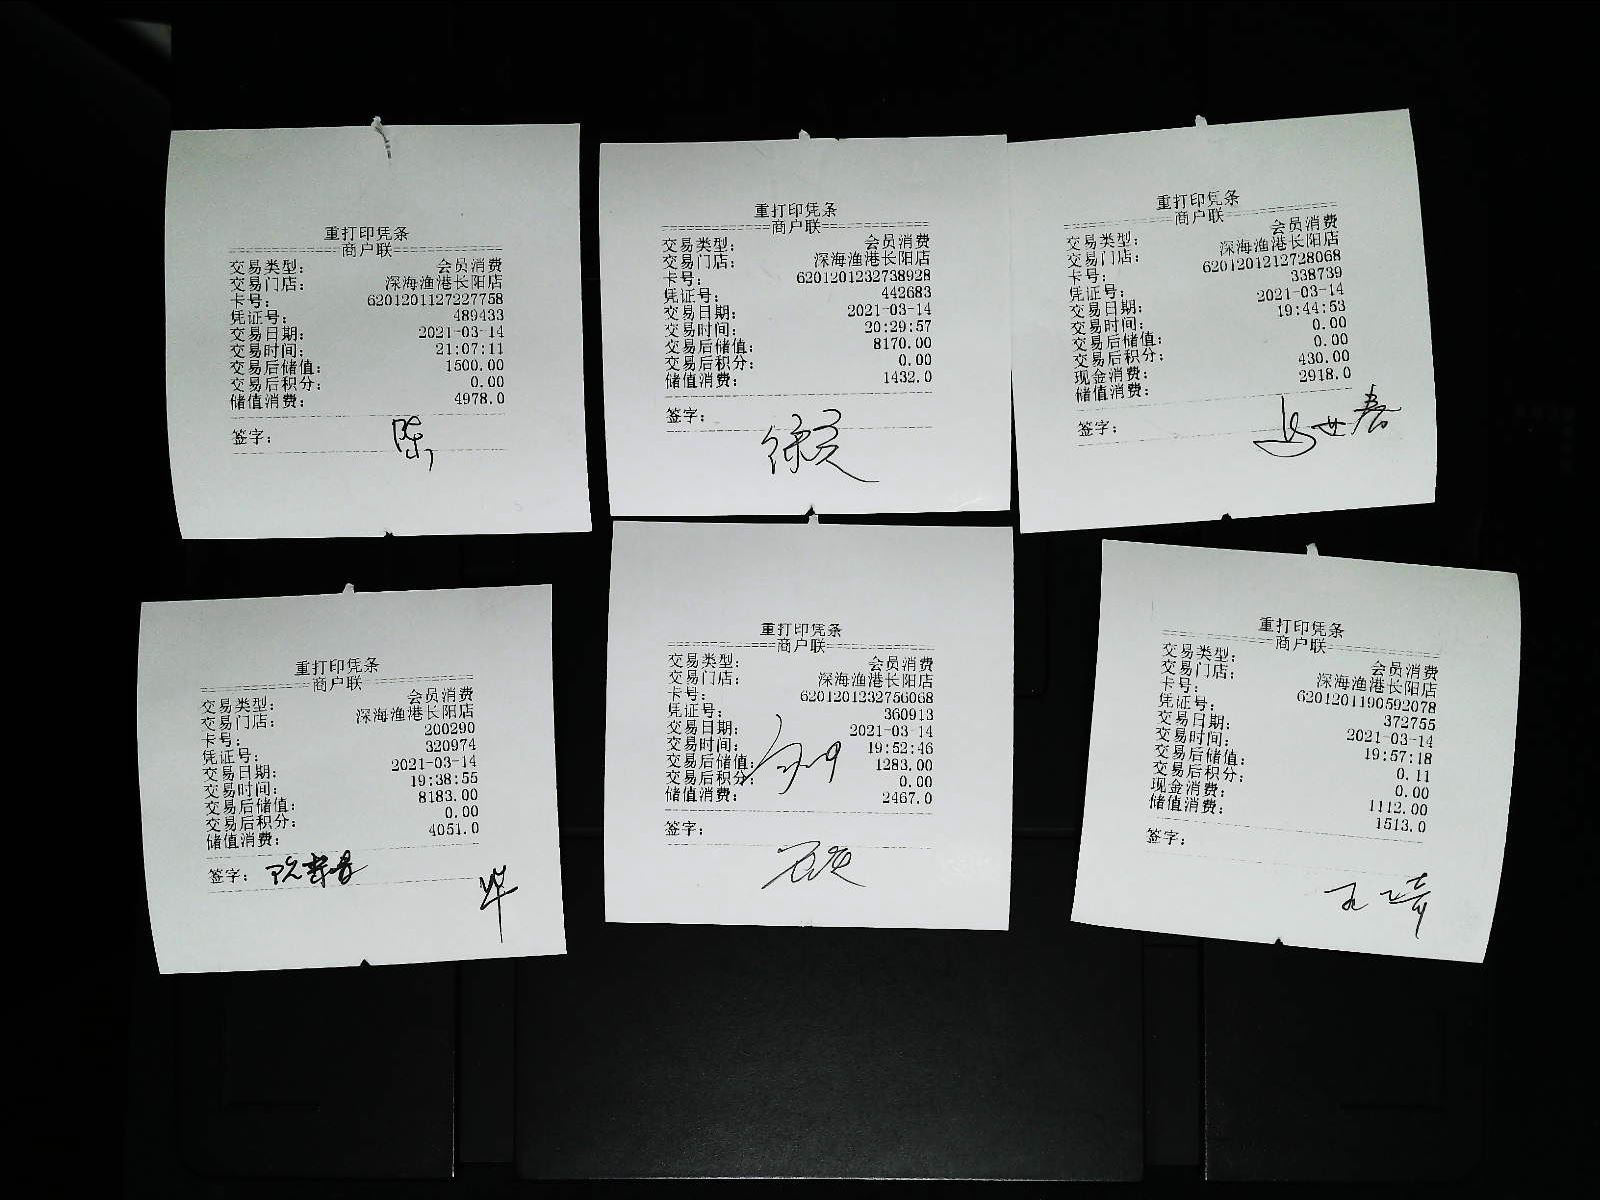 重打印凭条
商户联
交易类型： 会员消费
交易门店： 深海渔港长阳店
卡号： 6201201127227758
凭证号： 489433
交易日期： 2021-03-14
交易时间： 21:07:11
交易后储值： 1500.00
交易后积分： 0.00
储值消费： 4978.0
签字： 陈
重打印凭条
商户联
交易类型： 会员消费
交易门店： 深海渔港长阳店
卡号： 6201201232738928
凭证号： 442683
交易日期： 2021-03-14
交易时间： 20:29:57
交易后储值： 8170.00
交易后积分： 0.00
储值消费： 1432.0
签字：
重打印凭条
商户联
交易类型： 会员消费
交易门店： 深海渔港长阳店
卡号： 6201201212728068
凭证号： 338739
交易日期： 2021-03-14
交易时间： 19:44:53
交易后储值： 0.00
交易后积分： 0.00
现金消费： 430.00
储值消费： 2918.0
签字：
重打印凭条
商户联
交易类型： 会员消费
交易门店： 深海渔港长阳店
卡号： 200290
凭证号： 320974
交易日期： 2021-03-14
交易时间： 19:38:55
交易后储值： 8183.00
交易后积分： 0.00
储值消费： 4051.0
签字：
重打印凭条
商户联
交易类型： 会员消费
交易门店： 深海渔港长阳店
卡号： 6201201232756068
凭证号： 360913
交易日期： 2021-03-14
交易时间： 19:52:46
交易后储值： 1283.00
交易后积分： 0.00
储值消费： 2467.0
签字：
重打印凭条
商户联
交易类型： 会员消费
交易门店： 深海渔港长阳店
卡号： 6201201190592078
凭证号： 372755
交易日期： 2021-03-14
交易时间： 19:57:18
交易后储值： 0.11
交易后积分： 0.00
现金消费： 1112.00
储值消费： 1513.0
签字：